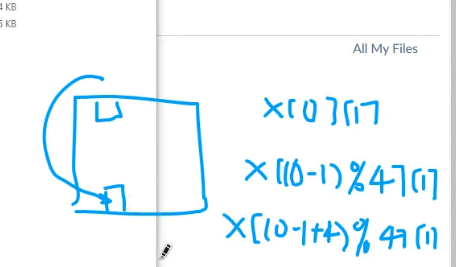 4 KB
5 KB
All My Files
X[0][1]
X[(0-1)%4][1]
X[(0-1+4)%4][1]